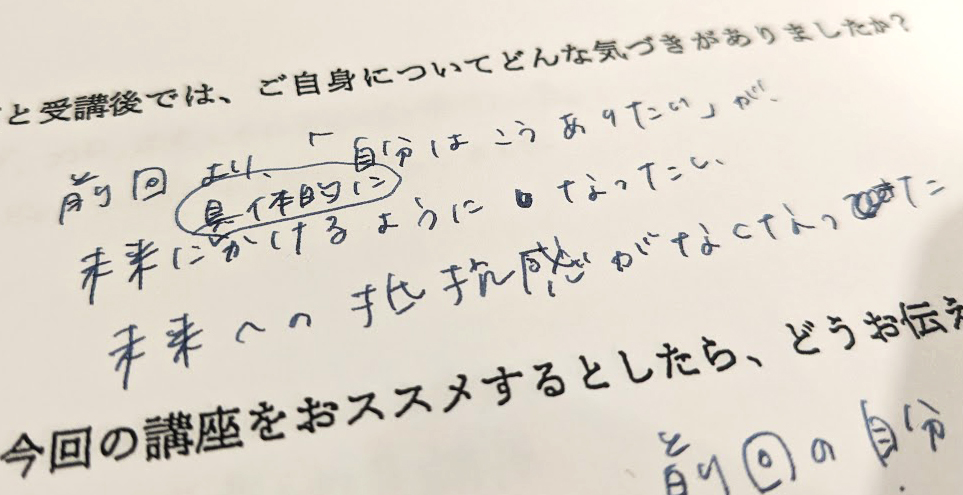 と受講後では、ご自身についてどんな気づきがありましたか?
前回より、「自分はこうありたい」が、
具体的に
未来にかけるようになったこと、
未来への抵抗感がなくなった
今回の講座をおススメするとしたら、どうお伝え
前回の自分